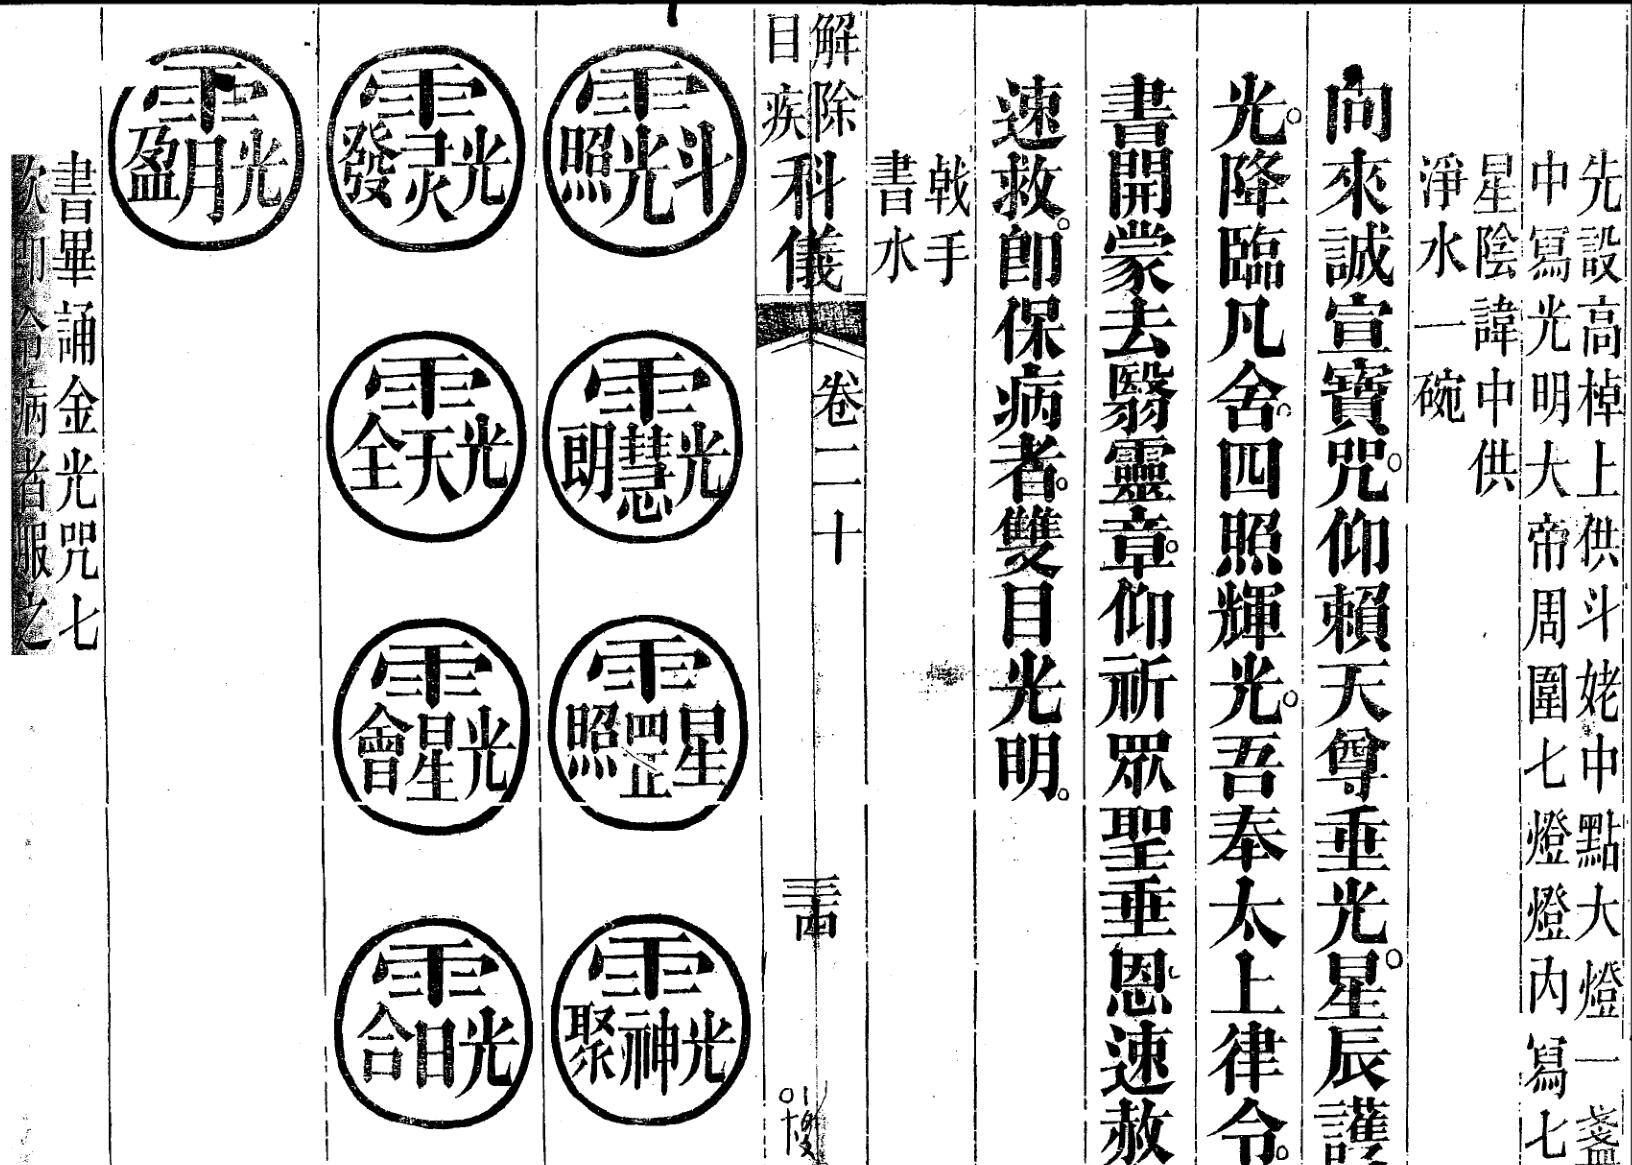 先設高棹上供斗姥中點大燈一盞
中寫光明大帝周圍七燈燈內寫七
星陰諱中供
淨水一碗
向來誠宣寶咒。仰賴天尊垂光。星辰護
光。降臨凡舍。四照輝光。吾奉太上律令。
書開蒙去翳靈章。仰祈眾聖垂恩。速赦
速救。即保病者。雙目光明。
戟手
書水
解除
目疾
科儀
卷二十
三四
斗光照
光慧朗
星四正照
光神聚
光灵發
光天全
光星會
光日合
光月盈
書畢誦金光咒七
次即令病者服之